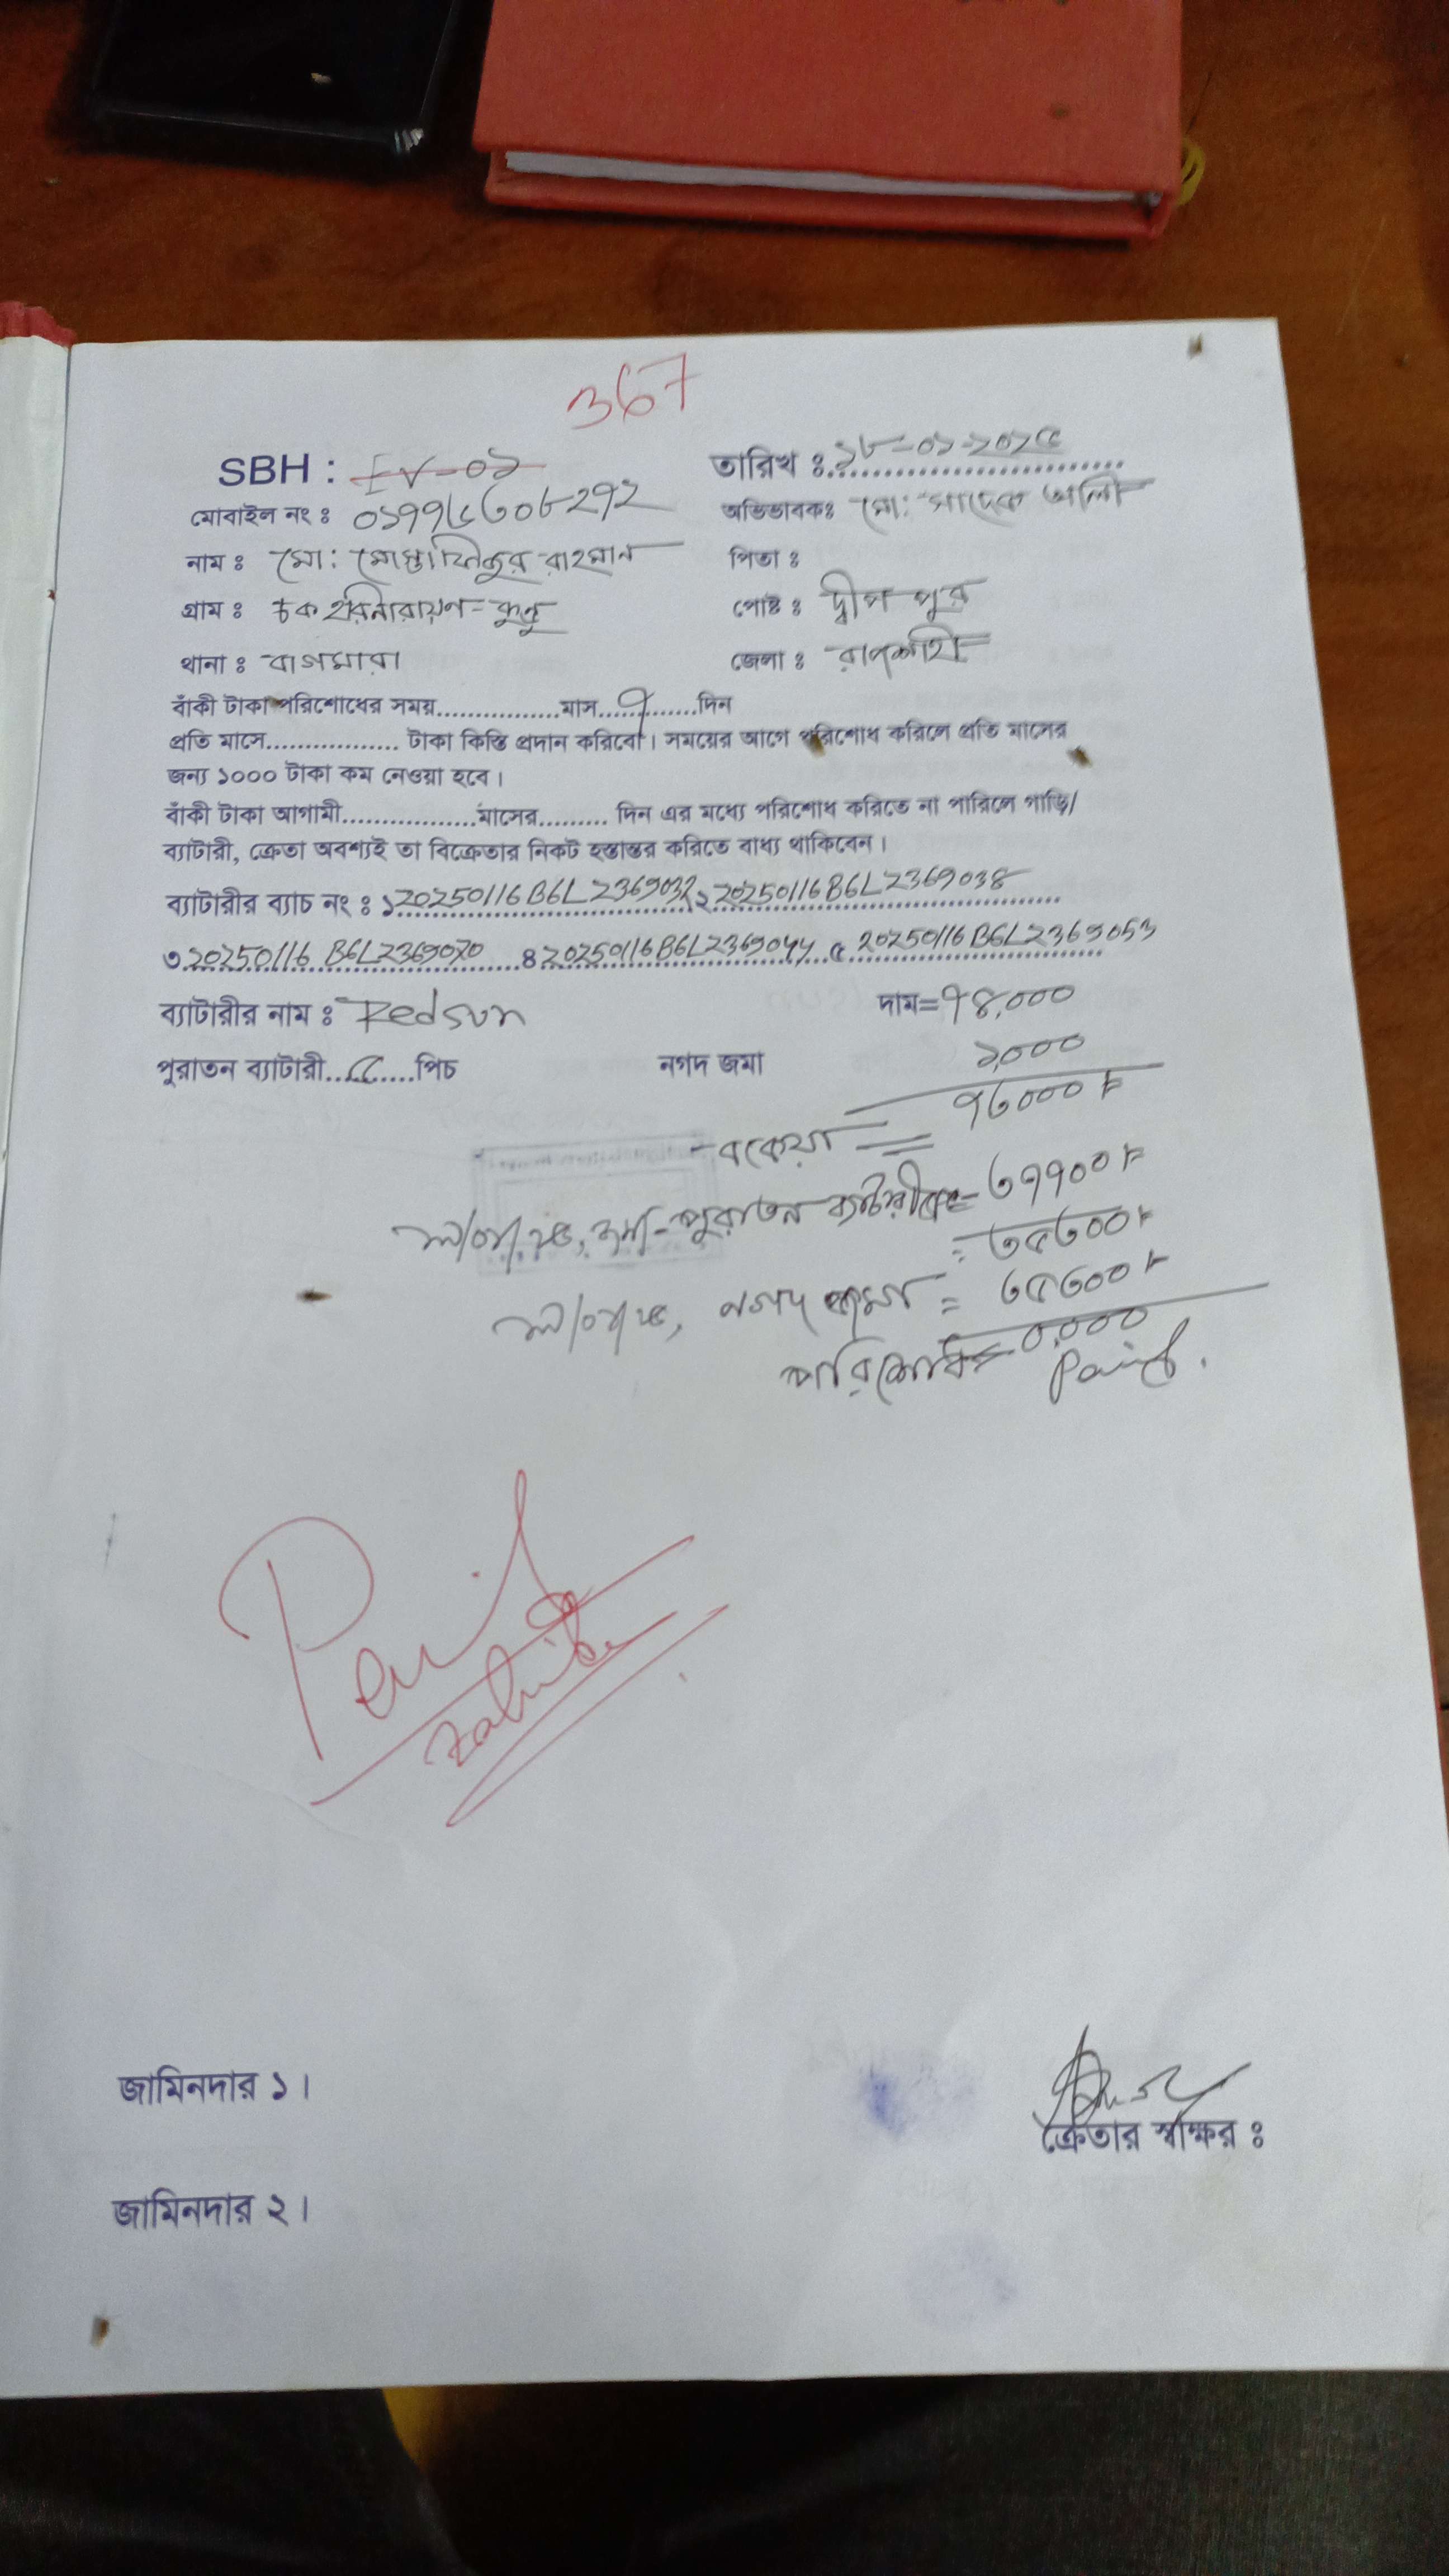 367
SBH : EV-০১ তারিখ ঃ ১৮-০১-২০২৫
মোবাইল নং ঃ অভিভাবকঃ মো: সাদেক আলী
নাম ঃ মো: মোস্তাফিজুর রহমান পিতা ঃ
গ্রাম ঃ চক হরিনারায়ণ-কুন্ডু পোষ্ট ঃ দ্বীপ পুর
থানা ঃ বাগমারা জেলা ঃ রাজশাহী
বাঁকী টাকা পরিশোধের সময়................মাস...৭.......দিন
প্রতি মাসে.................. টাকা কিস্তি প্রদান করিবো। সময়ের আগে পরিশোধ করিলে প্রতি মাসের
জন্য ১০০০ টাকা কম নেওয়া হবে।
বাঁকী টাকা আগামী..................মাসের......... দিন এর মধ্যে পরিশোধ করিতে না পারিলে গাড়ি/
ব্যাটারী, ক্রেতা অবশ্যই তা বিক্রেতার নিকট হস্তান্তর করিতে বাধ্য থাকিবেন।
ব্যাটারীর ব্যাচ নং ঃ ১ ২ 20250116B6L2369038
৩ 20250116 B6L2369070 ৪ 20250116B6L2369044 ৫ 20250116B6L2369053
ব্যাটারীর নাম ঃ Redsun দাম= ৭৪,০০০
পুরাতন ব্যাটারী...৫....পিচ নগদ জমা ১,০০০
বকেয়া = ৭৩০০০৳
জমা-পুরাতন ব্যাটারী = ৩৭৭০০৳
= ৩৫৩০০৳
নগদ জমা = ৩৫৩০০৳
পরিশোধ = 0,000
Paid.
Paid
Zahid
ক্রেতার স্বাক্ষর ঃ
জামিনদার ১।
জামিনদার ২।